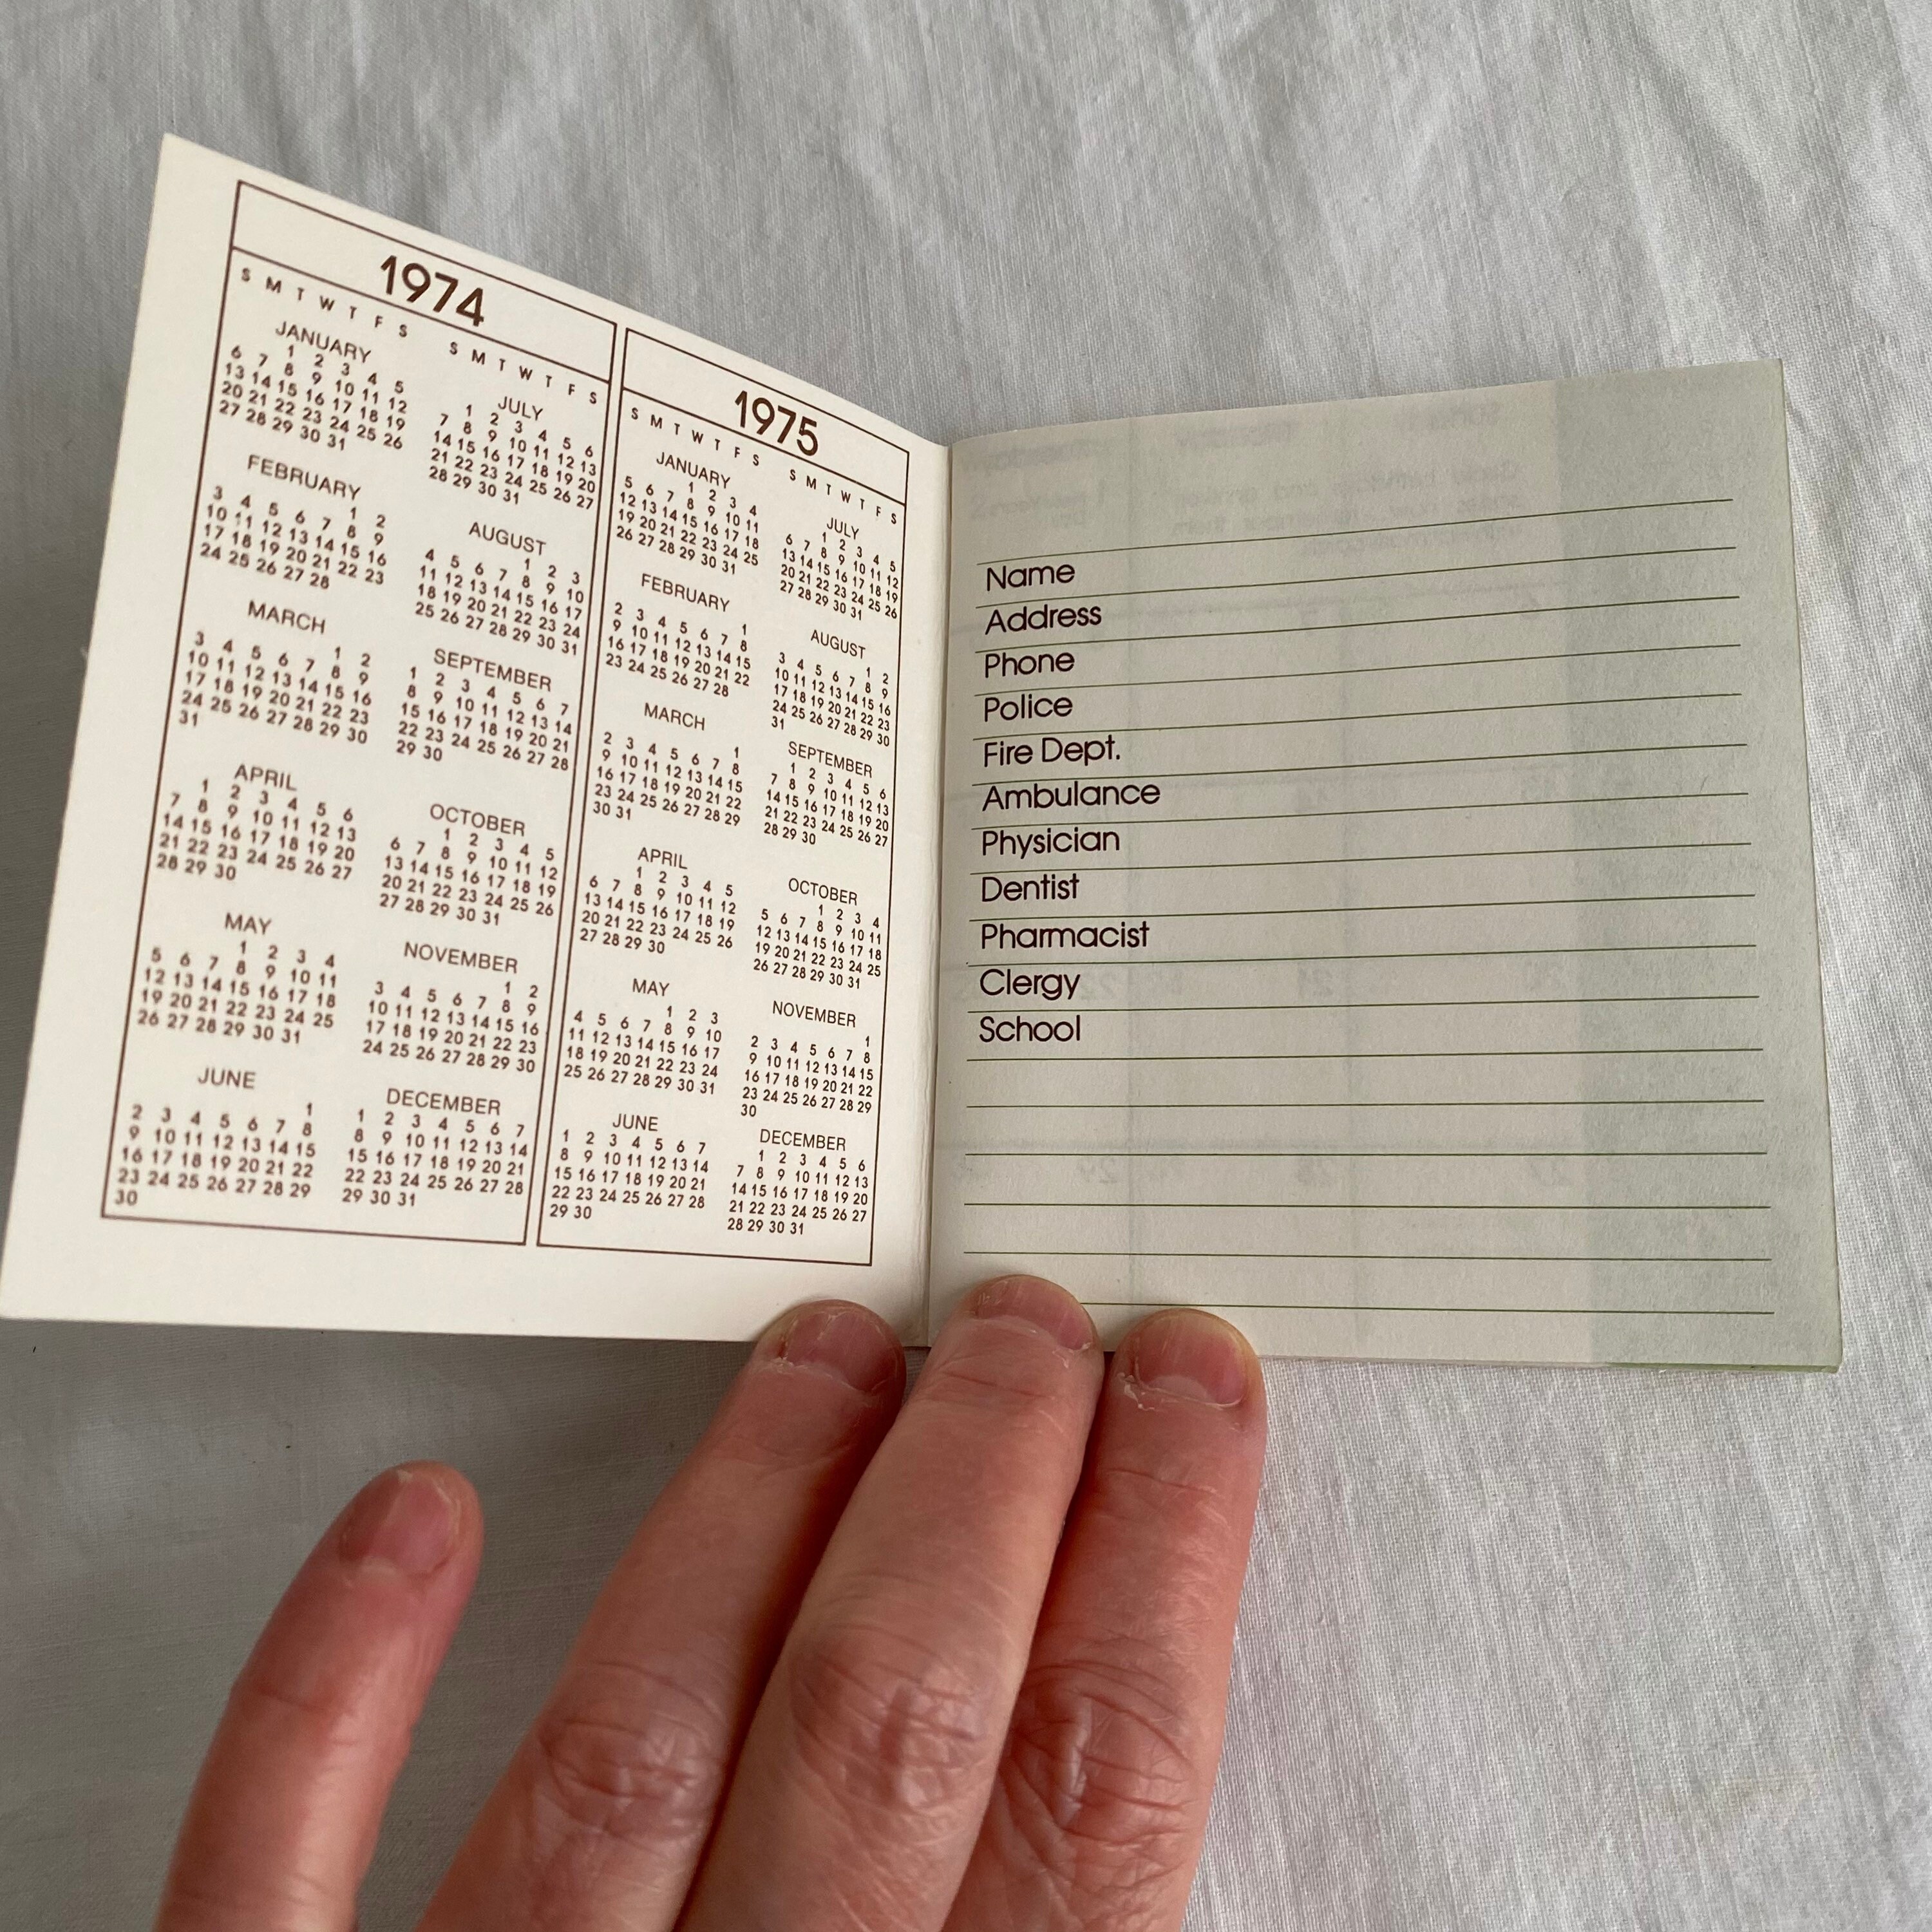 1974
S M T W T F S
JANUARY
1 2 3 4 5
6 7 8 9 10 11 12
13 14 15 16 17 18 19
20 21 22 23 24 25 26
27 28 29 30 31
FEBRUARY
1 2
3 4 5 6 7 8 9
10 11 12 13 14 15 16
17 18 19 20 21 22 23
24 25 26 27 28
MARCH
1 2
3 4 5 6 7 8 9
10 11 12 13 14 15 16
17 18 19 20 21 22 23
24 25 26 27 28 29 30
31
APRIL
1 2 3 4 5 6
7 8 9 10 11 12 13
14 15 16 17 18 19 20
21 22 23 24 25 26 27
28 29 30
MAY
1 2 3 4
5 6 7 8 9 10 11
12 13 14 15 16 17 18
19 20 21 22 23 24 25
26 27 28 29 30 31
JUNE
1
2 3 4 5 6 7 8
9 10 11 12 13 14 15
16 17 18 19 20 21 22
23 24 25 26 27 28 29
30
S M T W T F S
JULY
1 2 3 4 5 6
7 8 9 10 11 12 13
14 15 16 17 18 19 20
21 22 23 24 25 26 27
28 29 30 31
AUGUST
1 2 3
4 5 6 7 8 9 10
11 12 13 14 15 16 17
18 19 20 21 22 23 24
25 26 27 28 29 30 31
SEPTEMBER
1 2 3 4 5 6 7
8 9 10 11 12 13 14
15 16 17 18 19 20 21
22 23 24 25 26 27 28
29 30
OCTOBER
1 2 3 4 5
6 7 8 9 10 11 12
13 14 15 16 17 18 19
20 21 22 23 24 25 26
27 28 29 30 31
NOVEMBER
1 2
3 4 5 6 7 8 9
10 11 12 13 14 15 16
17 18 19 20 21 22 23
24 25 26 27 28 29 30
DECEMBER
1 2 3 4 5 6 7
8 9 10 11 12 13 14
15 16 17 18 19 20 21
22 23 24 25 26 27 28
29 30 31
1975
S M T W T F S
JANUARY
1 2 3 4
5 6 7 8 9 10 11
12 13 14 15 16 17 18
19 20 21 22 23 24 25
26 27 28 29 30 31
FEBRUARY
1
2 3 4 5 6 7 8
9 10 11 12 13 14 15
16 17 18 19 20 21 22
23 24 25 26 27 28
MARCH
1
2 3 4 5 6 7 8
9 10 11 12 13 14 15
16 17 18 19 20 21 22
23 24 25 26 27 28 29
30 31
APRIL
1 2 3 4 5
6 7 8 9 10 11 12
13 14 15 16 17 18 19
20 21 22 23 24 25 26
27 28 29 30
MAY
1 2 3
4 5 6 7 8 9 10
11 12 13 14 15 16 17
18 19 20 21 22 23 24
25 26 27 28 29 30 31
JUNE
1 2 3 4 5 6 7
8 9 10 11 12 13 14
15 16 17 18 19 20 21
22 23 24 25 26 27 28
29 30
S M T W T F S
JULY
1 2 3 4 5
6 7 8 9 10 11 12
13 14 15 16 17 18 19
20 21 22 23 24 25 26
27 28 29 30 31
AUGUST
1 2
3 4 5 6 7 8 9
10 11 12 13 14 15 16
17 18 19 20 21 22 23
24 25 26 27 28 29 30
31
SEPTEMBER
1 2 3 4 5 6
7 8 9 10 11 12 13
14 15 16 17 18 19 20
21 22 23 24 25 26 27
28 29 30
OCTOBER
1 2 3 4
5 6 7 8 9 10 11
12 13 14 15 16 17 18
19 20 21 22 23 24 25
26 27 28 29 30 31
NOVEMBER
1
2 3 4 5 6 7 8
9 10 11 12 13 14 15
16 17 18 19 20 21 22
23 24 25 26 27 28 29
30
DECEMBER
1 2 3 4 5 6
7 8 9 10 11 12 13
14 15 16 17 18 19 20
21 22 23 24 25 26 27
28 29 30 31
Name
Address
Phone
Police
Fire Dept.
Ambulance
Physician
Dentist
Pharmacist
Clergy
School